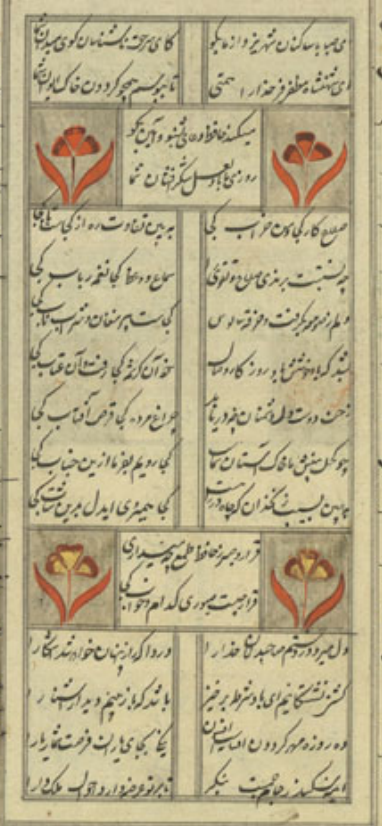 ای صبا با ساکنان شهر یزد از ما بگو کای سر حق ناشناسان گوی میدان شما
ای شهنشاه بلند اختر خدا را همتی تا ببوسم همچو گردون خاک ایوان شما
میکند حافظ دعائی بشنو و آمین بگو
روزی ما باد لعل شکرفشان شما
صلاح کار کجا و من خراب کجا ببین تفاوت ره از کجاست تا بکجا
چه نسبت برندی صلاح و تقوی را سماع وعظ کجا نغمه رباب کجا
دلم ز صومعه بگرفت و خرقه سالوس کجاست دیر مغان و شراب ناب کجا
بشد که یاد خوشش باد روز کار وصال خود آن کرشمه کجا رفت و آن عتاب کجا
ز روی دوست دل دشمنان چه دریابد چراغ مرده کجا قرص آفتاب کجا
چو کحل بینش ما خاک آستان شماست کجا رویم بفرما ازین جناب کجا
مبین بسیب زنخدان که چاه در راهست کجا همی روی ای دل بدین شتاب کجا
قرار و صبر ز حافظ طمع مدار ای
قرار چیست صبوری کدام و خواب کجا
دل میرود ز دستم صاحبدلان خدا را دردا که راز پنهان خواهد شد آشکارا
کشتی نشستگانیم ای باد شرطه برخیز باشد که باز بینم دیدار آشنا را
ده روزه مهر گردون افسانه است افسون نیکی بجای یاران فرصت شمار یارا
آیینه سکندر جام جمست بنگر تا بر تو عرضه دارد احوال ملک دارا